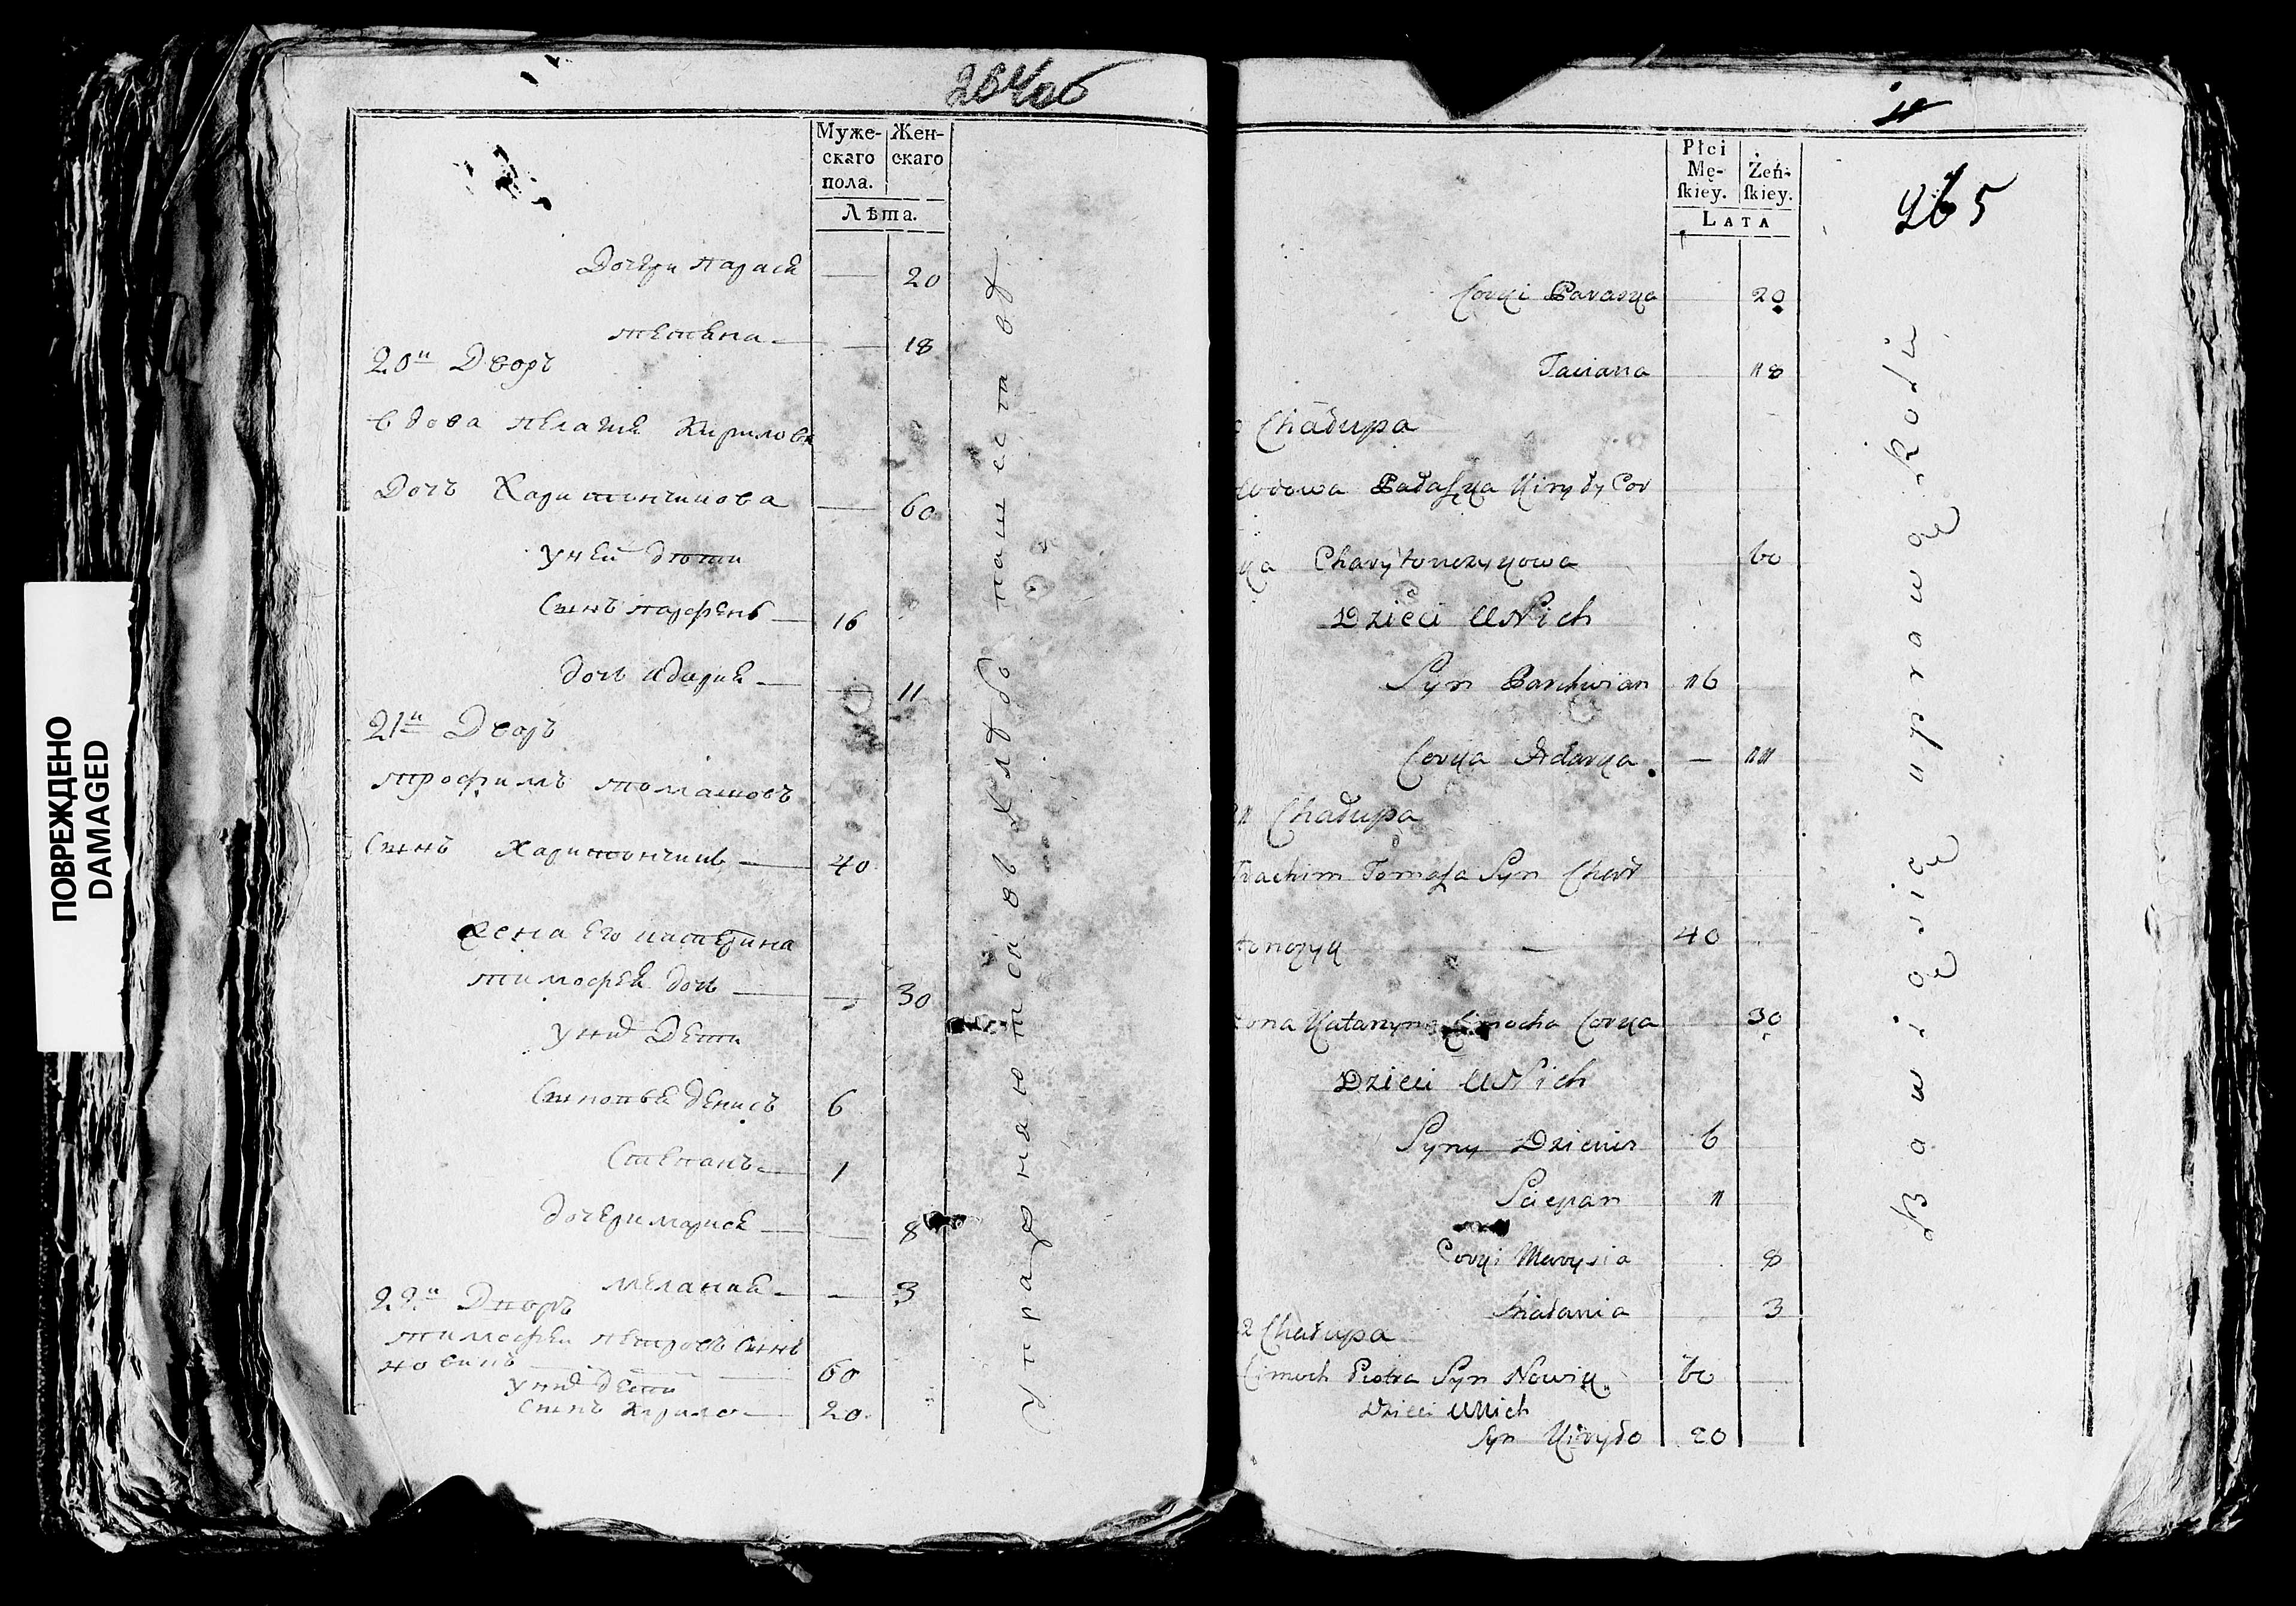 ПОВРЕЖДЕНО
DAMAGED
264об
Муже-
скаго
пола.
Жен-
скаго
Лѣта.
Дочери Парася — 20
Тетяна — 18
20й Дворъ
вдова Пелагия Кирилова
Дочь Харитончикова — 60
у ней дети
Сынъ Парфенъ — 16
дочь Адария — 11
21й Дворъ
Трофимъ Томашовъ
Сынъ Харитончикъ — 40
Жена его Катерина
Тимофея дочь — 30
у них Дети
Сыновья Денисъ 6
Степанъ — 1
дочери Марися — 8
Мелания — 3
22й Дворъ
Тимофей Петровъ Сынъ
Новикъ — 60
у них дети
Сынъ Кирило — 20
Упражняются въ хлебопашестве
265
Płci
Mę-
ſkiey.
Żeń-
ſkiey.
LATA
Corki Paraska 20
Taciana 18
Chałupa
Wdowa Pałaſka Kiryły Cor
ka Charytonczykowa 60
Dzieci U Nich
Syn Parchwian 16
Corka Adarka — 11
Chałupa
Trachim Tomaſza Syn Chary
tonczyk — 40
Zona Katarzyna Cimocha Corka 30
Dzieci U Nich
Syny Dzienis 6
Sciepan 1
Corki Marysia 8
Małania 3
2 Chałupa
Cimoch Piotra Syn Nowik 60
Dzieci U Nich
Syn Kiryło 20
Bawią się uprawą Roli